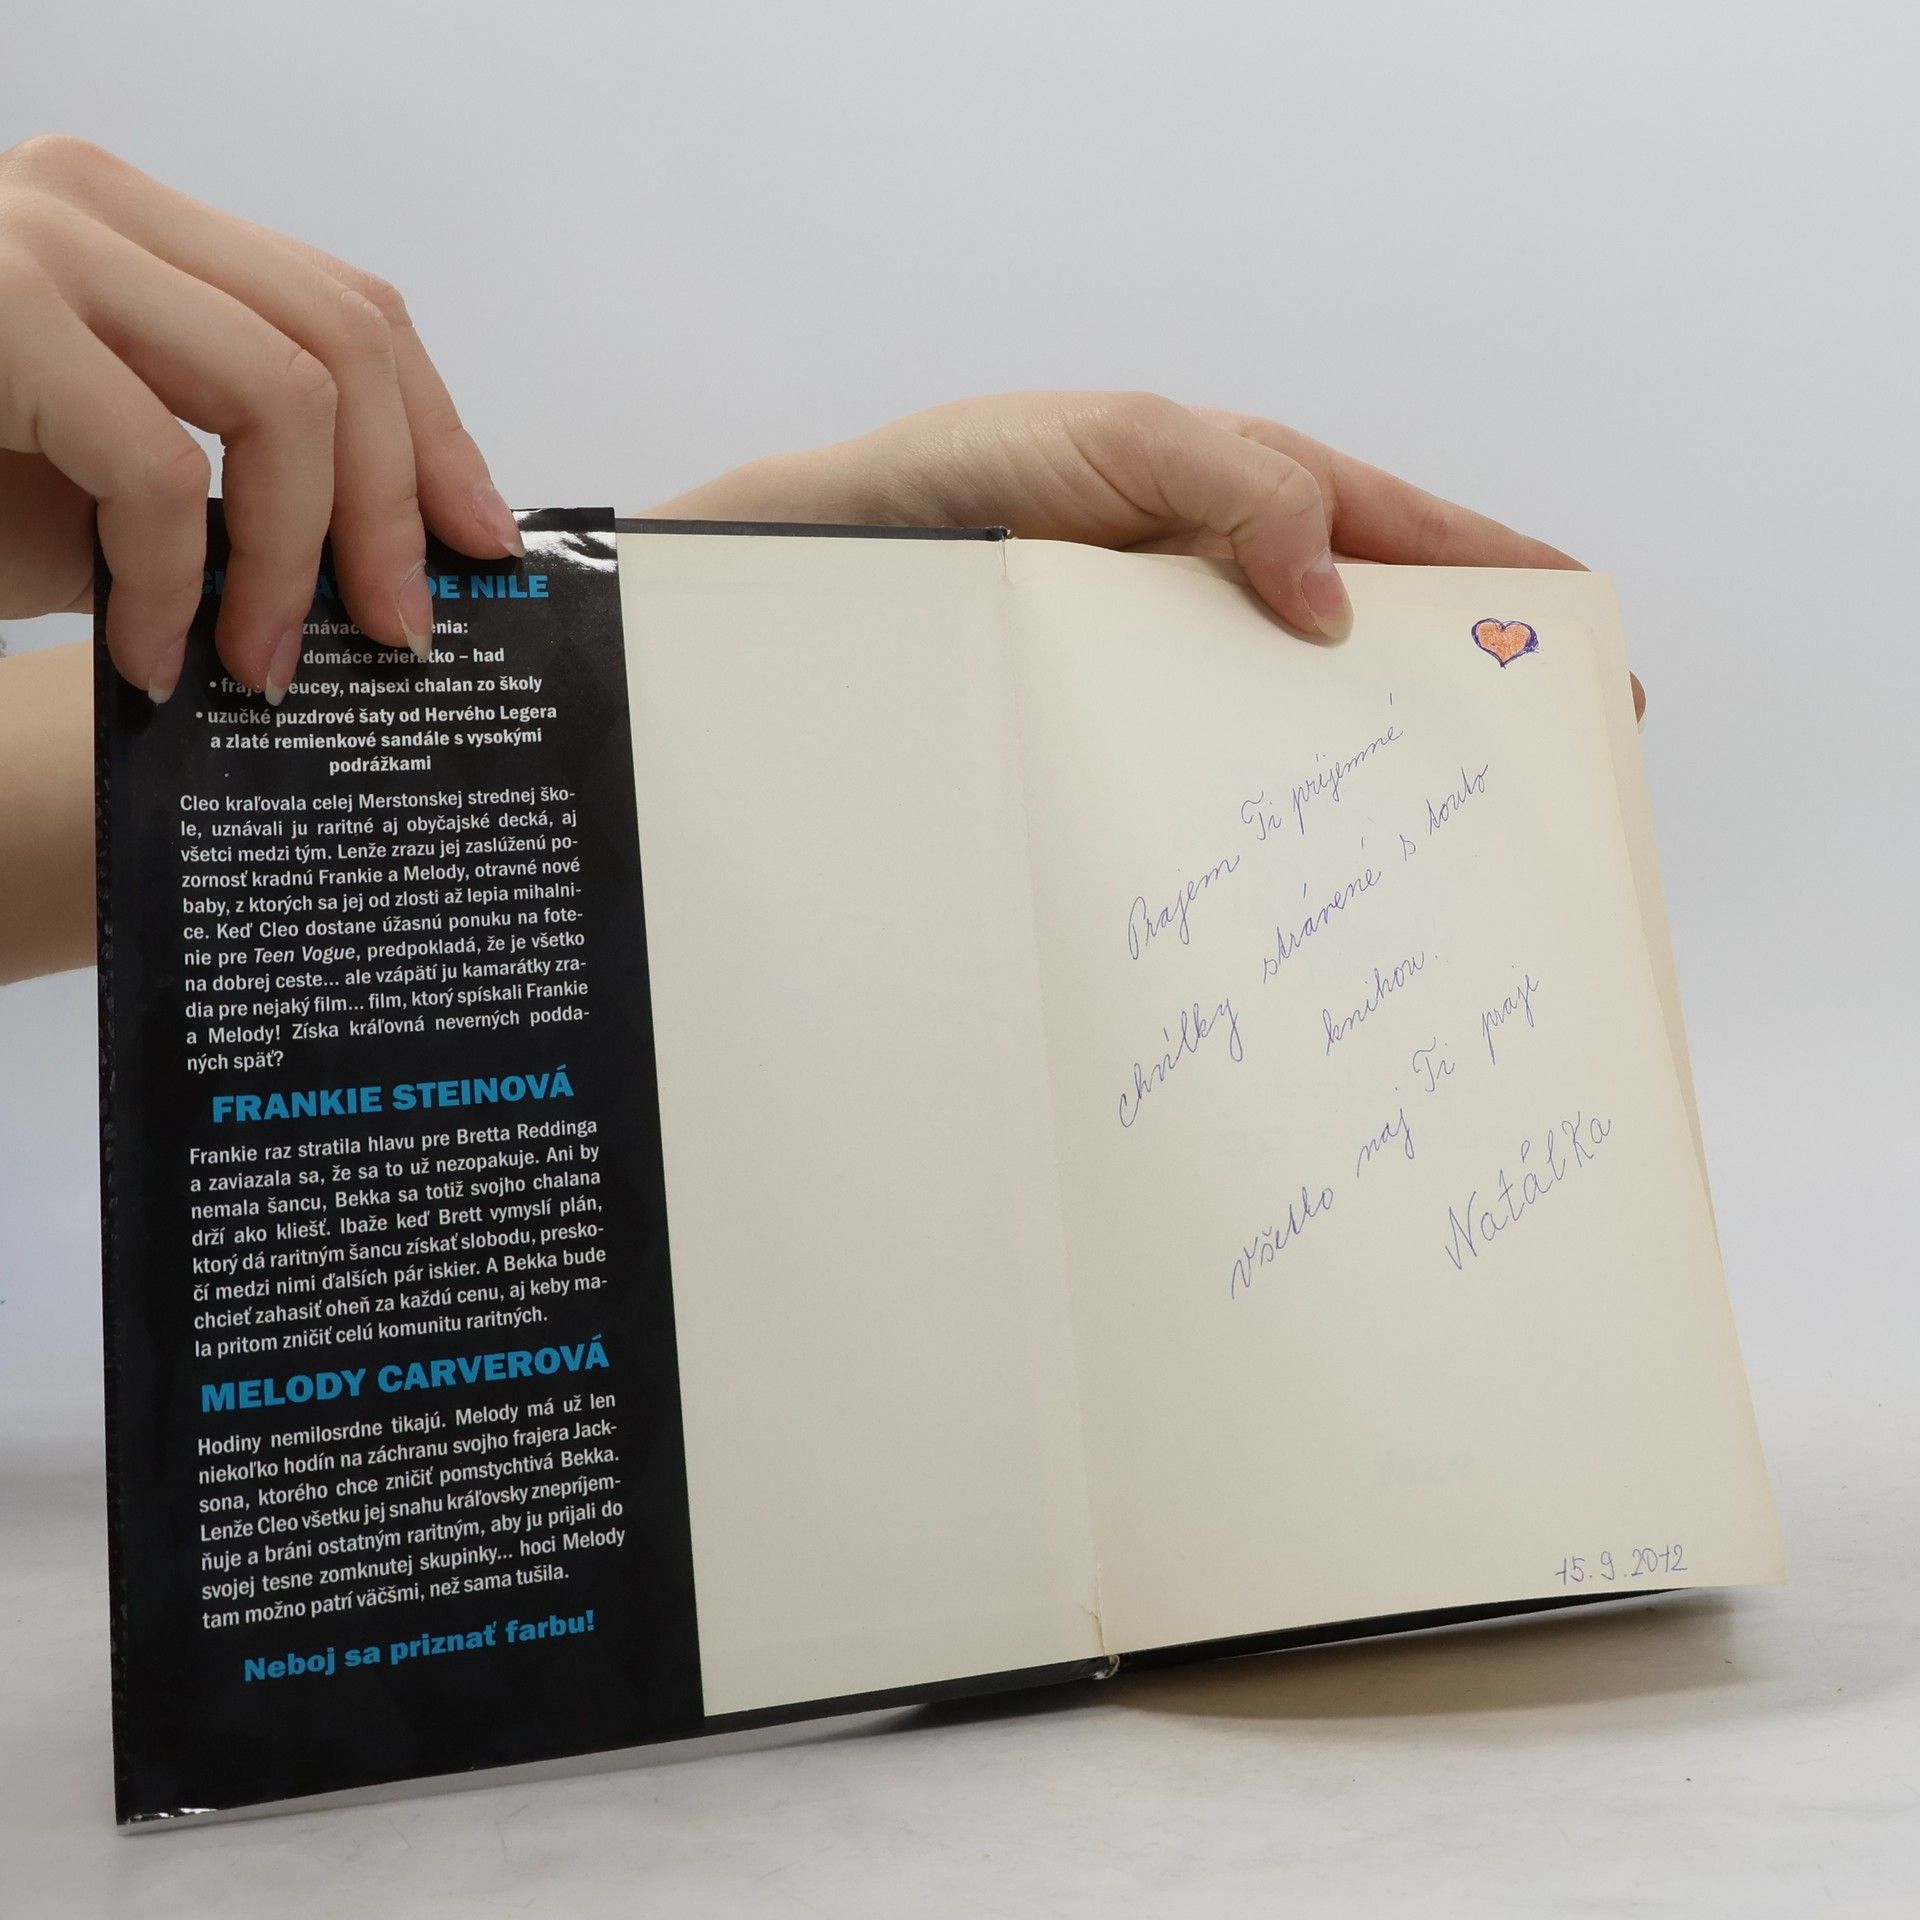 DE NILE
domáce zvieratko – had
najsexi chalan zo školy
• uzučké puzdrové šaty od Hervého Legera
a zlaté remienkové sandále s vysokými
podrážkami
Cleo kraľovala celej Merstonskej strednej ško-
le, uznávali ju raritné aj obyčajské decká, aj
všetci medzi tým. Lenže zrazu jej zaslúženú po-
zornosť kradnú Frankie a Melody, otravné nové
baby, z ktorých sa jej od zlosti až lepia mihalni-
ce. Keď Cleo dostane úžasnú ponuku na fote-
nie pre Teen Vogue, predpokladá, že je všetko
na dobrej ceste... ale vzápätí ju kamarátky zra-
dia pre nejaký film... film, ktorý spískali Frankie
a Melody! Získa kráľovná neverných podda-
ných späť?
FRANKIE STEINOVÁ
Frankie raz stratila hlavu pre Bretta Reddinga
a zaviazala sa, že sa to už nezopakuje. Ani by
nemala šancu, Bekka sa totiž svojho chalana
drží ako kliešť. Ibaže keď Brett vymyslí plán,
ktorý dá raritným šancu získať slobodu, presko-
čí medzi nimi ďalších pár iskier. A Bekka bude
chcieť zahasiť oheň za každú cenu, aj keby ma-
la pritom zničiť celú komunitu raritných.
MELODY CARVEROVÁ
Hodiny nemilosrdne tikajú. Melody má už len
niekoľko hodín na záchranu svojho frajera Jack-
sona, ktorého chce zničiť pomstychtivá Bekka.
Lenže Cleo všetku jej snahu kráľovsky znepríjem-
ňuje a bráni ostatným raritným, aby ju prijali do
svojej tesne zomknutej skupinky... hoci Melody
tam možno patrí väčšmi, než sama tušila.
Neboj sa priznať farbu!
Prajem Ti príjemné
chvíľky strávené s touto
knihou.
Všetko naj Ti praje
Natálka
15.9.2012